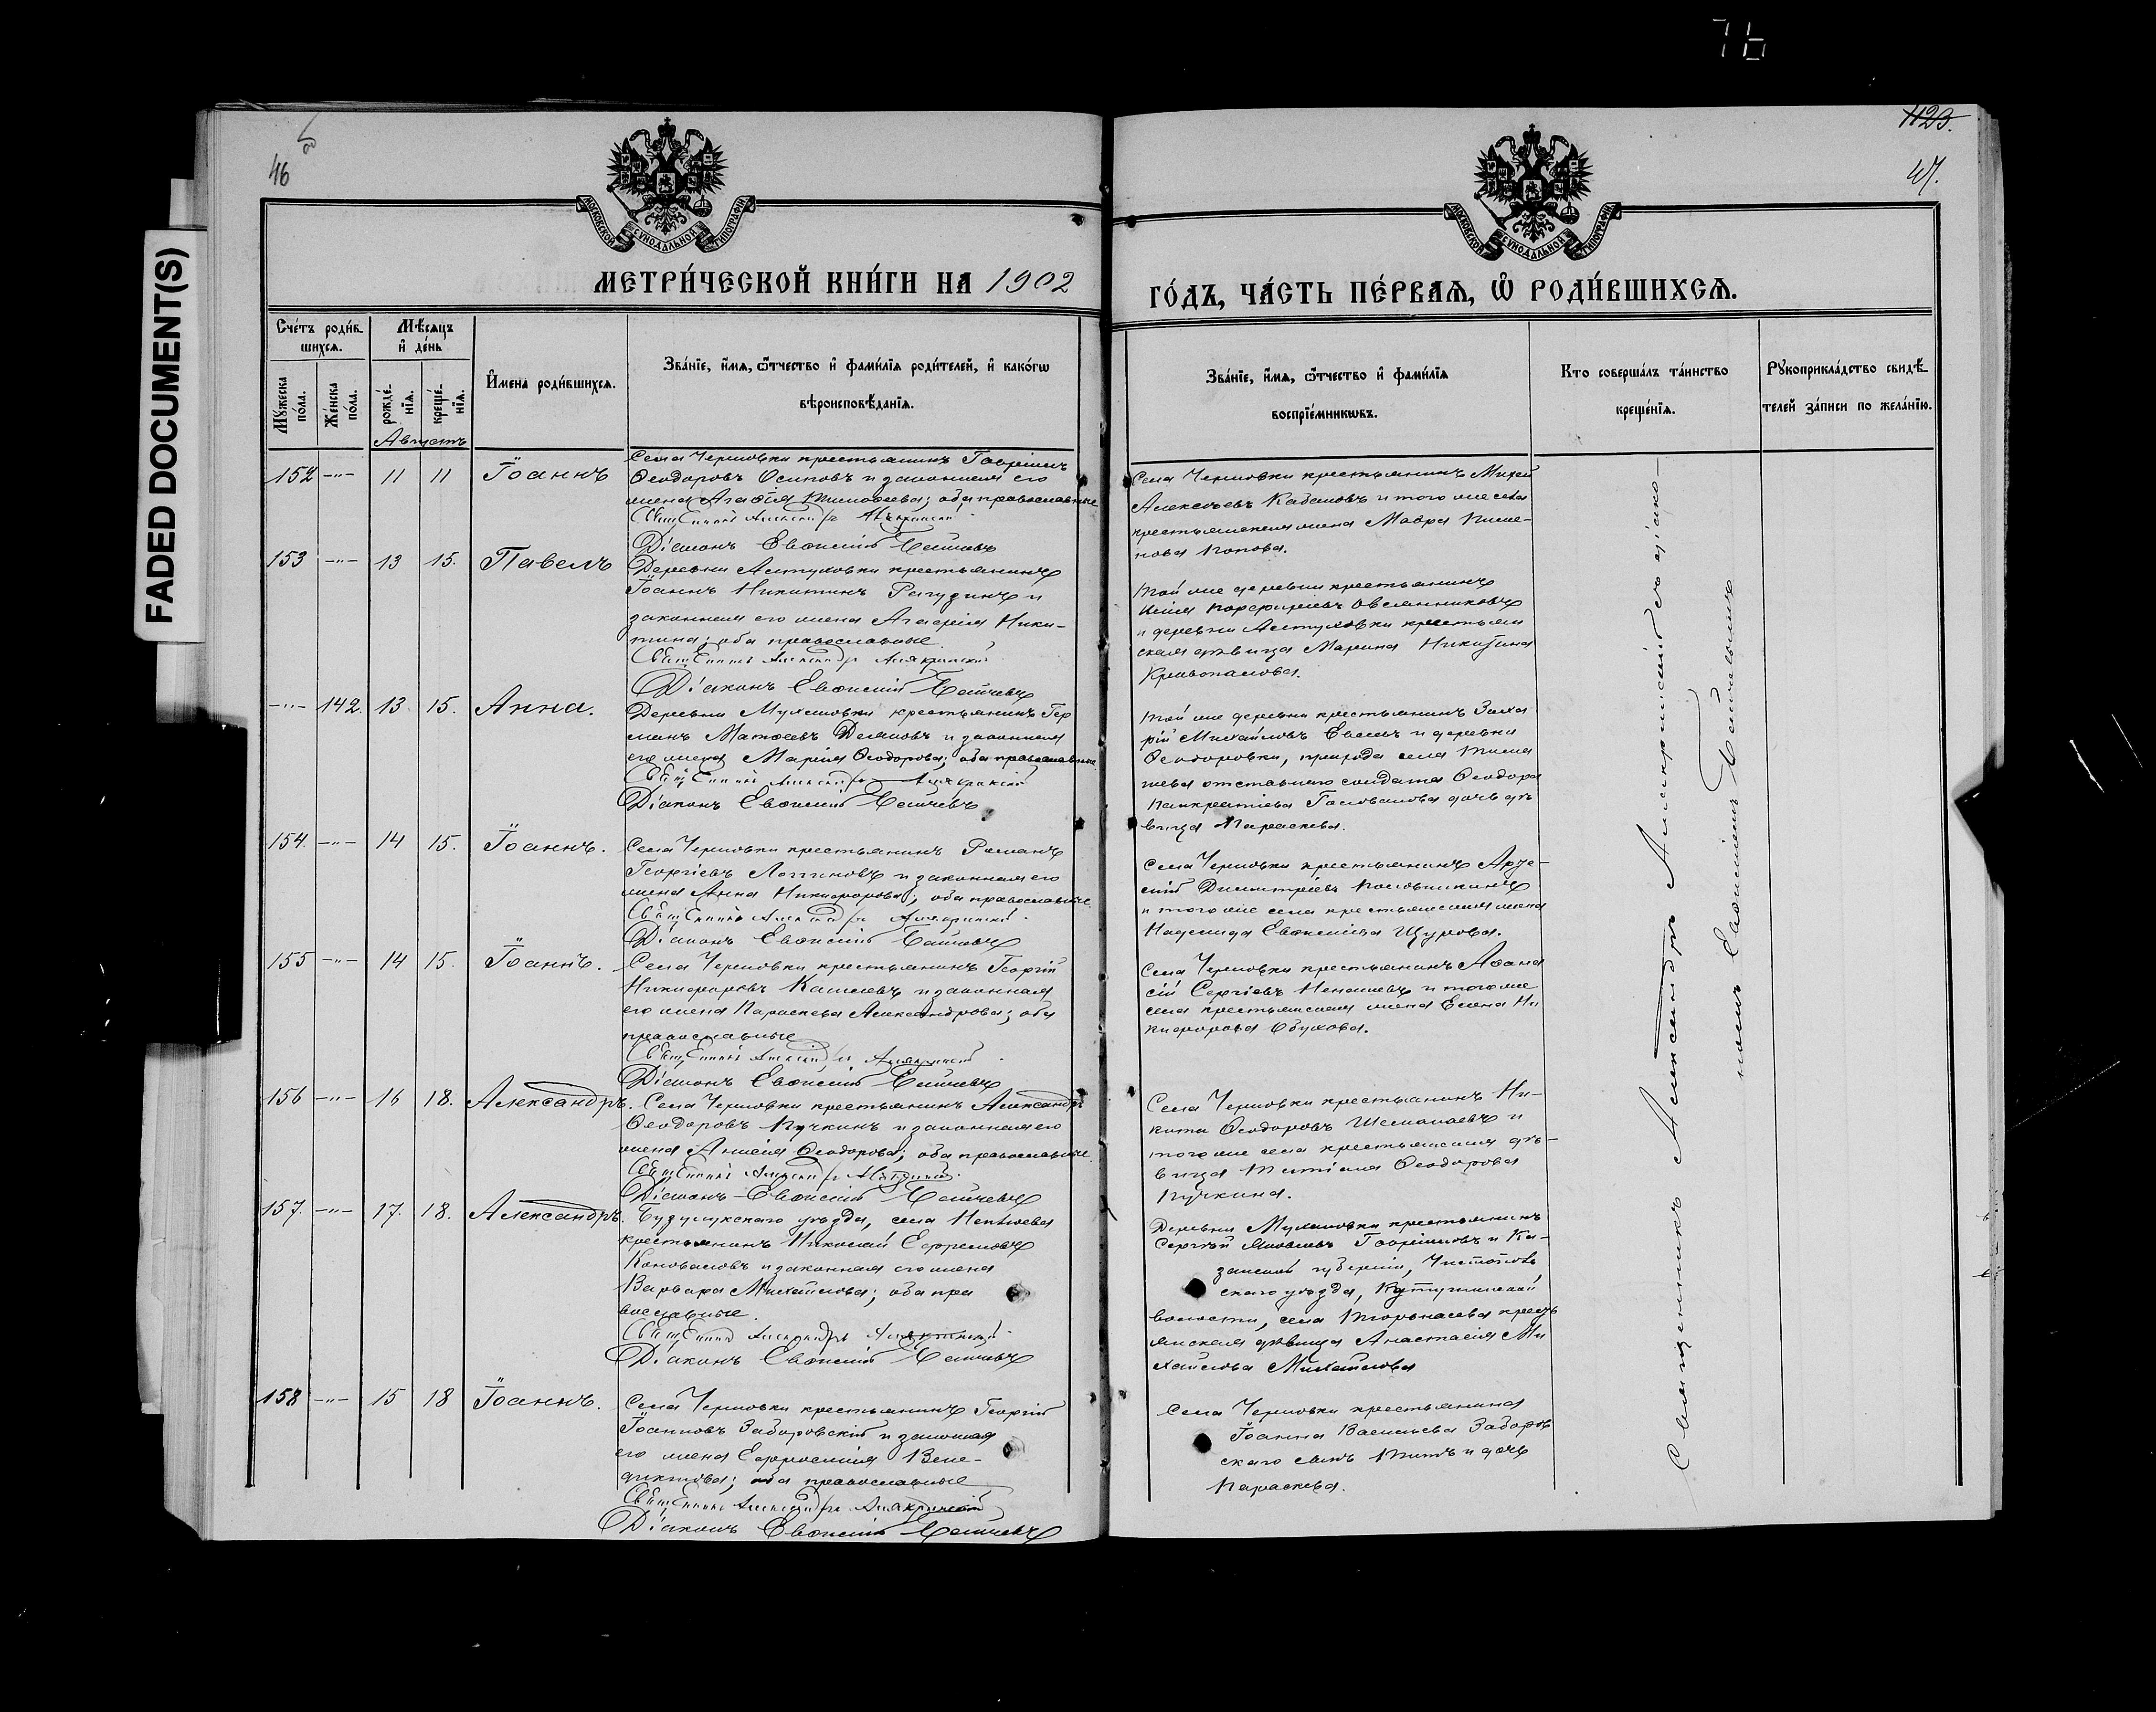 76
FADED DOCUMENT(S)
46
1123.
47.
МОСКОВСКОЙ СѴНОДАЛЬНОЙ ТИПОГРАФІИ
МОСКОВСКОЙ СѴНОДАЛЬНОЙ ТИПОГРАФІИ
МЕТРИ́ЧЕСКОЙ КНИ́ГИ НА 1902
ГО́ДЪ, ЧА́СТЬ ПЕ́РВАѦ, Ѡ РОДИ́ВШИХСѦ.
Сче́тъ роди́в-
шихсѧ.
Мѣ́сѧцъ
и҆ де́нь
Мꙋ́жеска
по́ла.
Же́нска
по́ла.
рожде́-
нїѧ.
креще́-
нїѧ.
Августъ
И҆мена роди́вшихсѧ.
Зва́нїе, и҆́мѧ, ѻ҆́тчество и҆ фами́лїѧ роди́телей, и҆ како́гѡ
вѣроисповѣ́данїѧ.
Зва́нїе, и҆́мѧ, ѻ҆́тчество и҆ фами́лїѧ
воспрїе́мникѡвъ.
Кто соверша́лъ та́инство
креще́нїѧ.
Рꙋкоприкла́дство свидѣ́-
телей за́писи по жела́нїю.
152 -"- 11 11 Іоаннъ
Села Черновки крестьянинъ Гавріилъ
Ѳеодоровъ Осиповъ и законная его
жена Агаѳія Тимоѳеева; оба православные
Священникъ Александръ
Діаконъ Евѳимій
Села Черновки крестьянинъ Михей
Алексѣевъ Кабановъ и того же села
крестьянская жена Мавра Пиме-
нова Попова.
153 -"- 13 15. Павелъ
Деревни Алтуховки крестьянинъ
Іоаннъ Никитинъ Рагузинъ и
законная его жена Агаѳія Ники-
тина; оба православные
Священникъ Александръ
Діаконъ Евѳимій
Той же деревни крестьянинъ
Илія Порфирьевъ Овсянниковъ
и деревни Алтуховки крестьян
ская дѣвица Марина Никитина
Кривопалова.
-"- 142. 13 15. Анна.
Деревни Мухановки крестьянинъ Гер
манъ Матѳеевъ и законная
его жена Марія Ѳеодорова; оба православные
Священникъ Александръ
Діаконъ Евѳимій
Той же деревни крестьянинъ Заха
рій Михайловъ и деревни
Ѳеодоровки, прихода села
отставного солдата Ѳеодора
Панкратіева дочь дѣ
вица Параскева.
154. -"- 14 15. Іоаннъ.
Села Черновки крестьянинъ Романъ
Георгіевъ Логиновъ и законная его
жена Анна Никифорова; оба православные
Священникъ Александръ
Діаконъ Евѳимій
Села Черновки крестьянинъ Арсе-
ній Димитріевъ
и того же села крестьянская жена
Надежда Евѳимиева Щурова.
155 -"- 14 15. Іоаннъ.
Села Черновки крестьянинъ Георгій
Никифоровъ и законная
его жена Параскева Александрова; оба
православные
Священникъ Александръ
Діаконъ Евѳимій
Села Черновки крестьянинъ Аѳана
сій Сергіевъ Ненашевъ и того же
села крестьянская жена Елена Ни
кифорова Обухова.
156 -"- 16 18. Александръ.
Села Черновки крестьянинъ Александръ
Ѳеодоровъ Пучкинъ и законная его
жена Анисія Ѳеодорова; оба православные.
Священникъ Александръ
Діаконъ Евѳимій
Села Черновки крестьянинъ Ни-
кита Ѳеодоровъ и
того же села крестьянская дѣ-
вица Ѳеодорова
Пучкина.
157. -"- 17. 18. Александръ.
Бузулукскаго уѣзда, села
крестьянинъ Николай Ефремовъ
Коноваловъ и законная его жена
Варвара Михайлова; оба пра
вославные.
Священникъ Александръ
Діаконъ Евѳимій
Деревни Мухановки крестьянинъ
Сергѣй Яковлевъ Гавриловъ и Ка-
занской губерніи, Чистополь
скаго уѣзда,
волости, села кресть
янская дѣвица Анастасія Ми
хайлова Михайлова
158 -"- 15 18 Іоаннъ.
Села Черновки крестьянинъ Георгій
Іоанновъ Заборовскій и законная
его жена Ефросинія Вене-
диктова; оба православные
Священникъ Александръ
Діаконъ Евѳимій
Села Черновки крестьянина
Іоанна Васильева Заборов
скаго сынъ Титъ и дочь
Параскева.
Священникъ Александръ съ діако-
номъ Евѳиміемъ